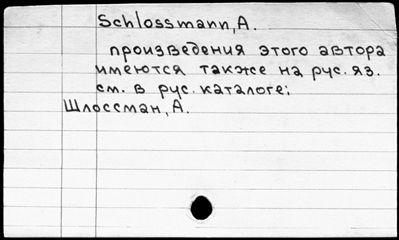 Schlossmann, A.
произведения этого автора
имеются также на рус. яз.
см. в рус. каталоге:
Шлоссман, А.